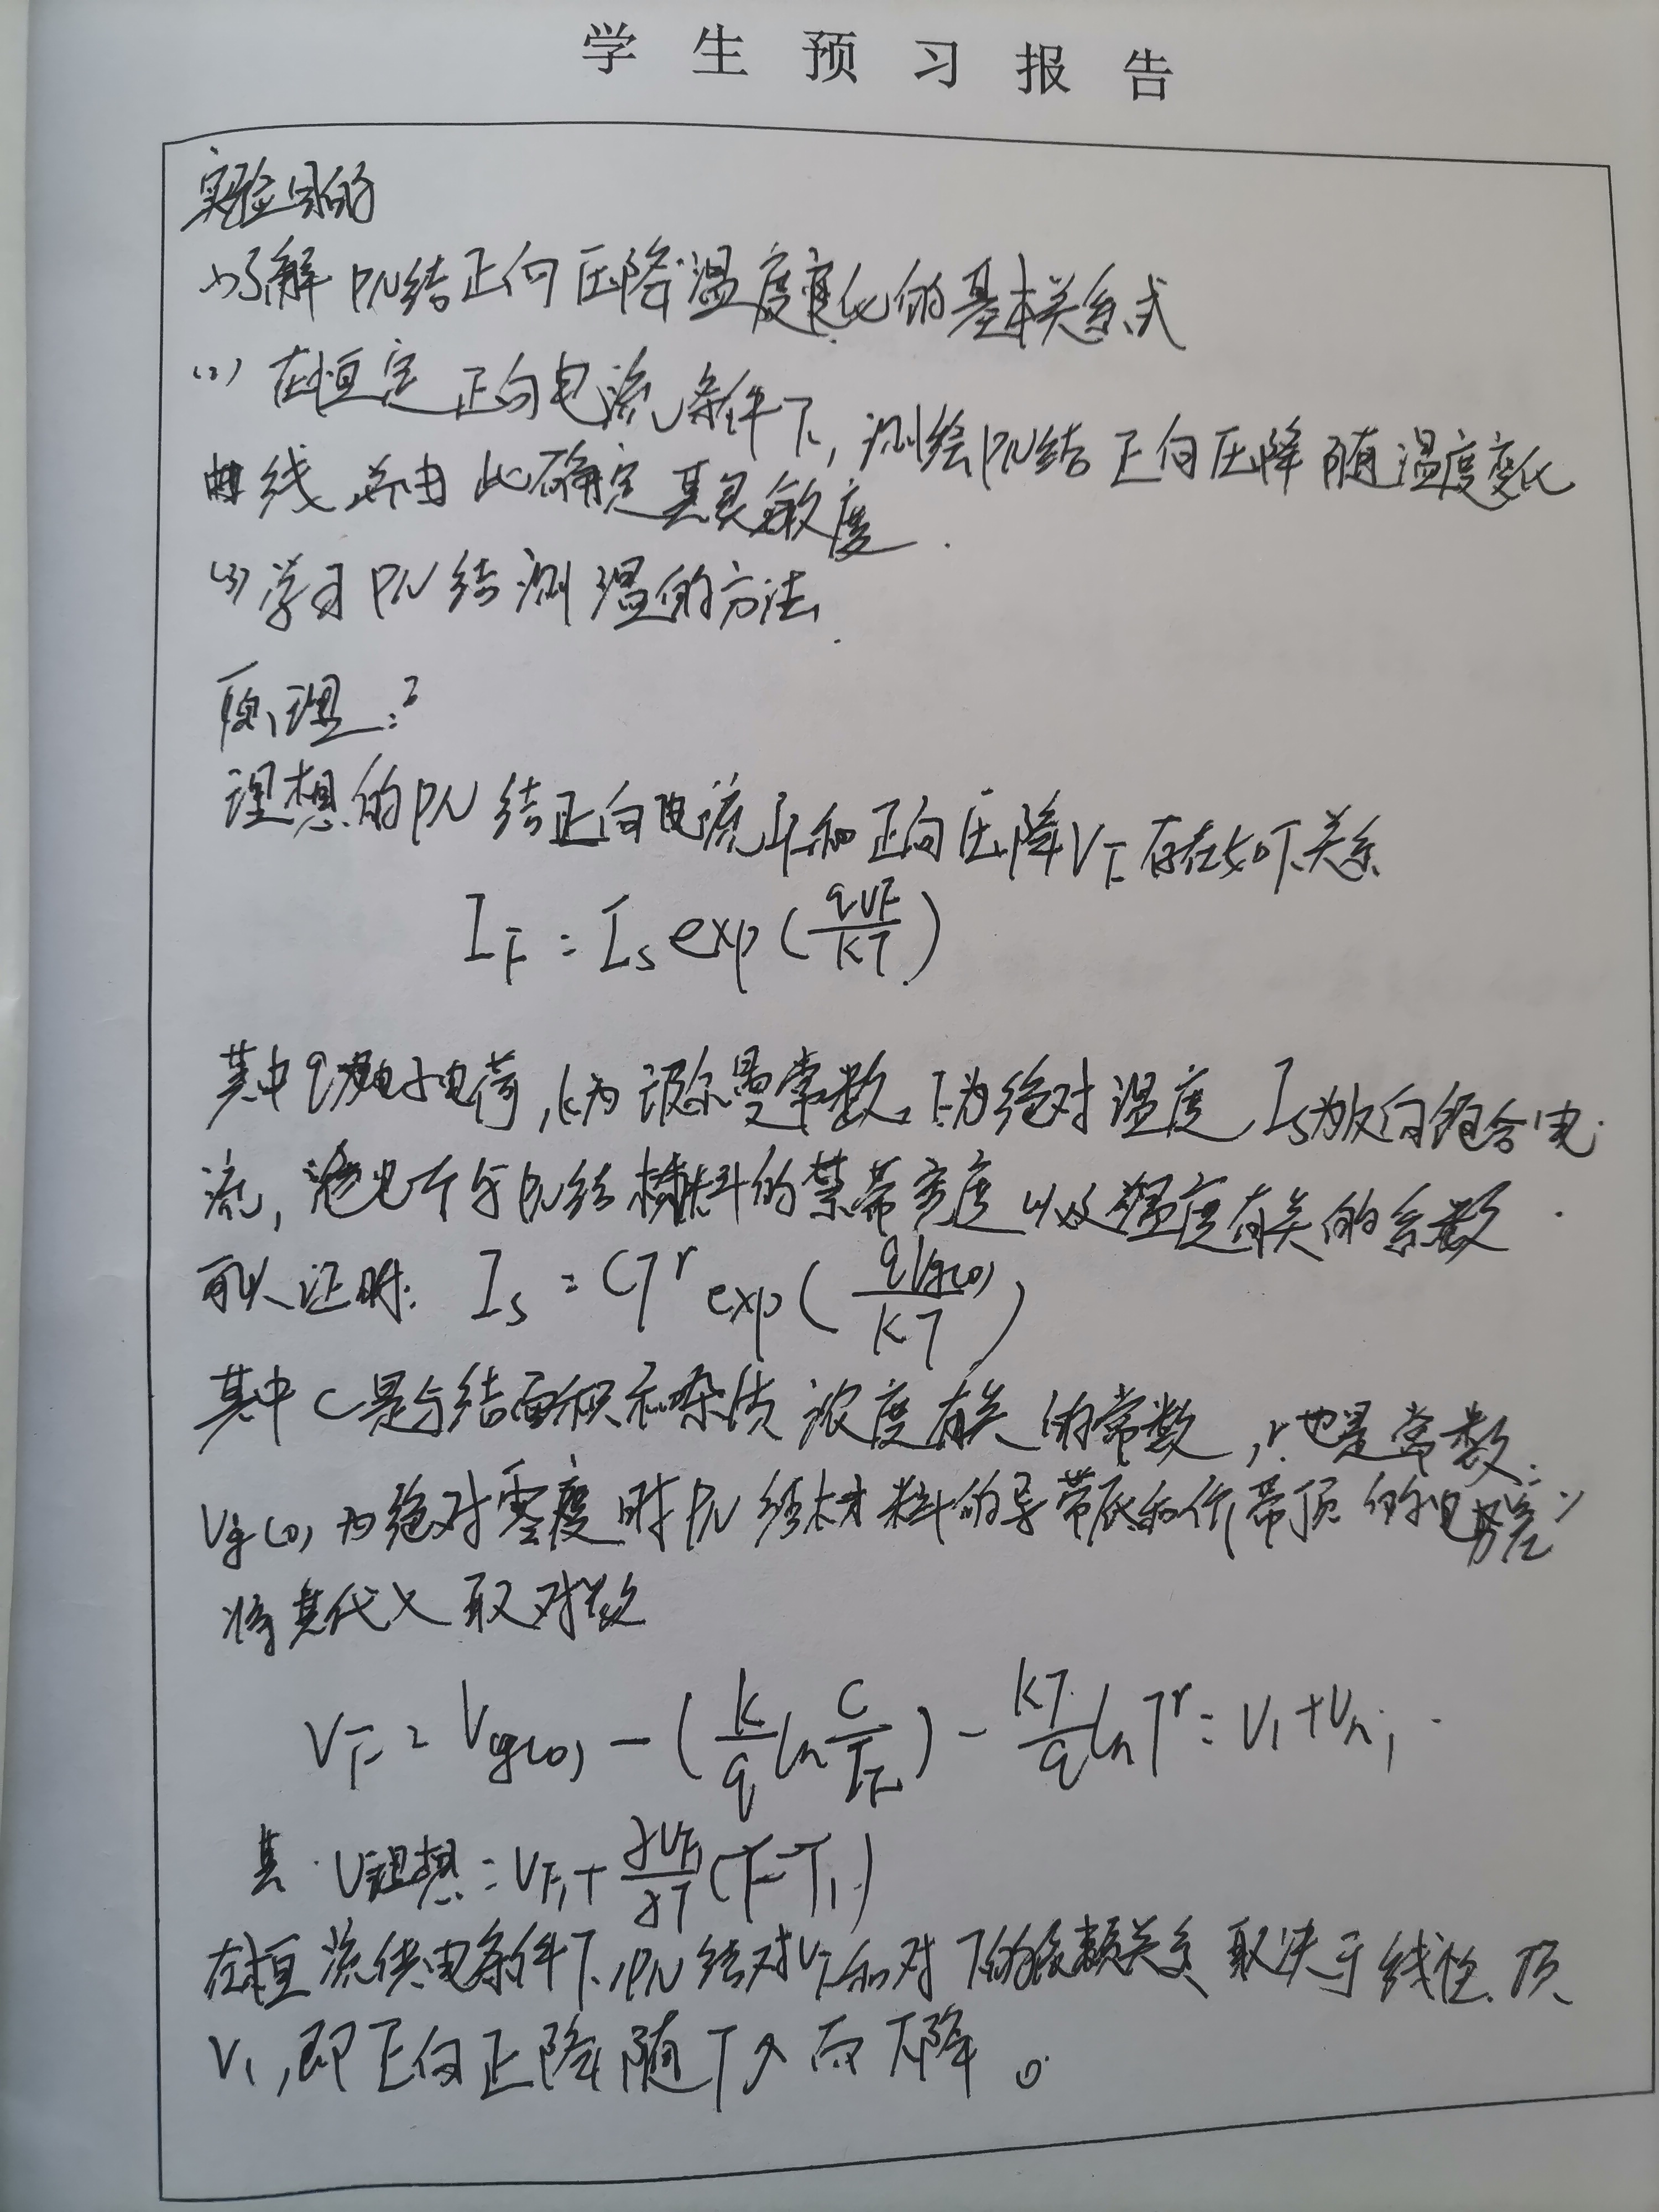 学生预习报告
实验目的
(1)了解PN结正向压降温度变化的基本关系式
(2) 在恒定正向电流条件下,测绘PN结正向压降随温度变化
曲线,并由此确定其灵敏度.
(3)学习PN结测温的方法.
原理:
理想的PN结正向电流IF和正向压降VF存在如下关系
IF = Is exp(qVF/kT)
其中q为电子电荷,k为波尔曼常数,T为绝对温度,Is为反向饱合电
流,它是个与PN结材料的禁带宽度以及温度有关的系数.
可以证明: Is = CT^r exp(qVg(0)/kT)
其中C是与结面积和杂质浓度有关的常数,r也是常数:
Vg(0)为绝对零度时PN结材料的导带底和价带顶的电势差
将其代入取对数
VF = Vg(0) - (k/q ln C/IF) - kT/q ln T^r = V1 + Vn1
其 V理想 = VF1 + ∂VF1/∂T (T-T1)
在恒流供电条件下,PN结对VF和对T的依赖关系取决于线性项
V1,即正向压降随T↗而下降。